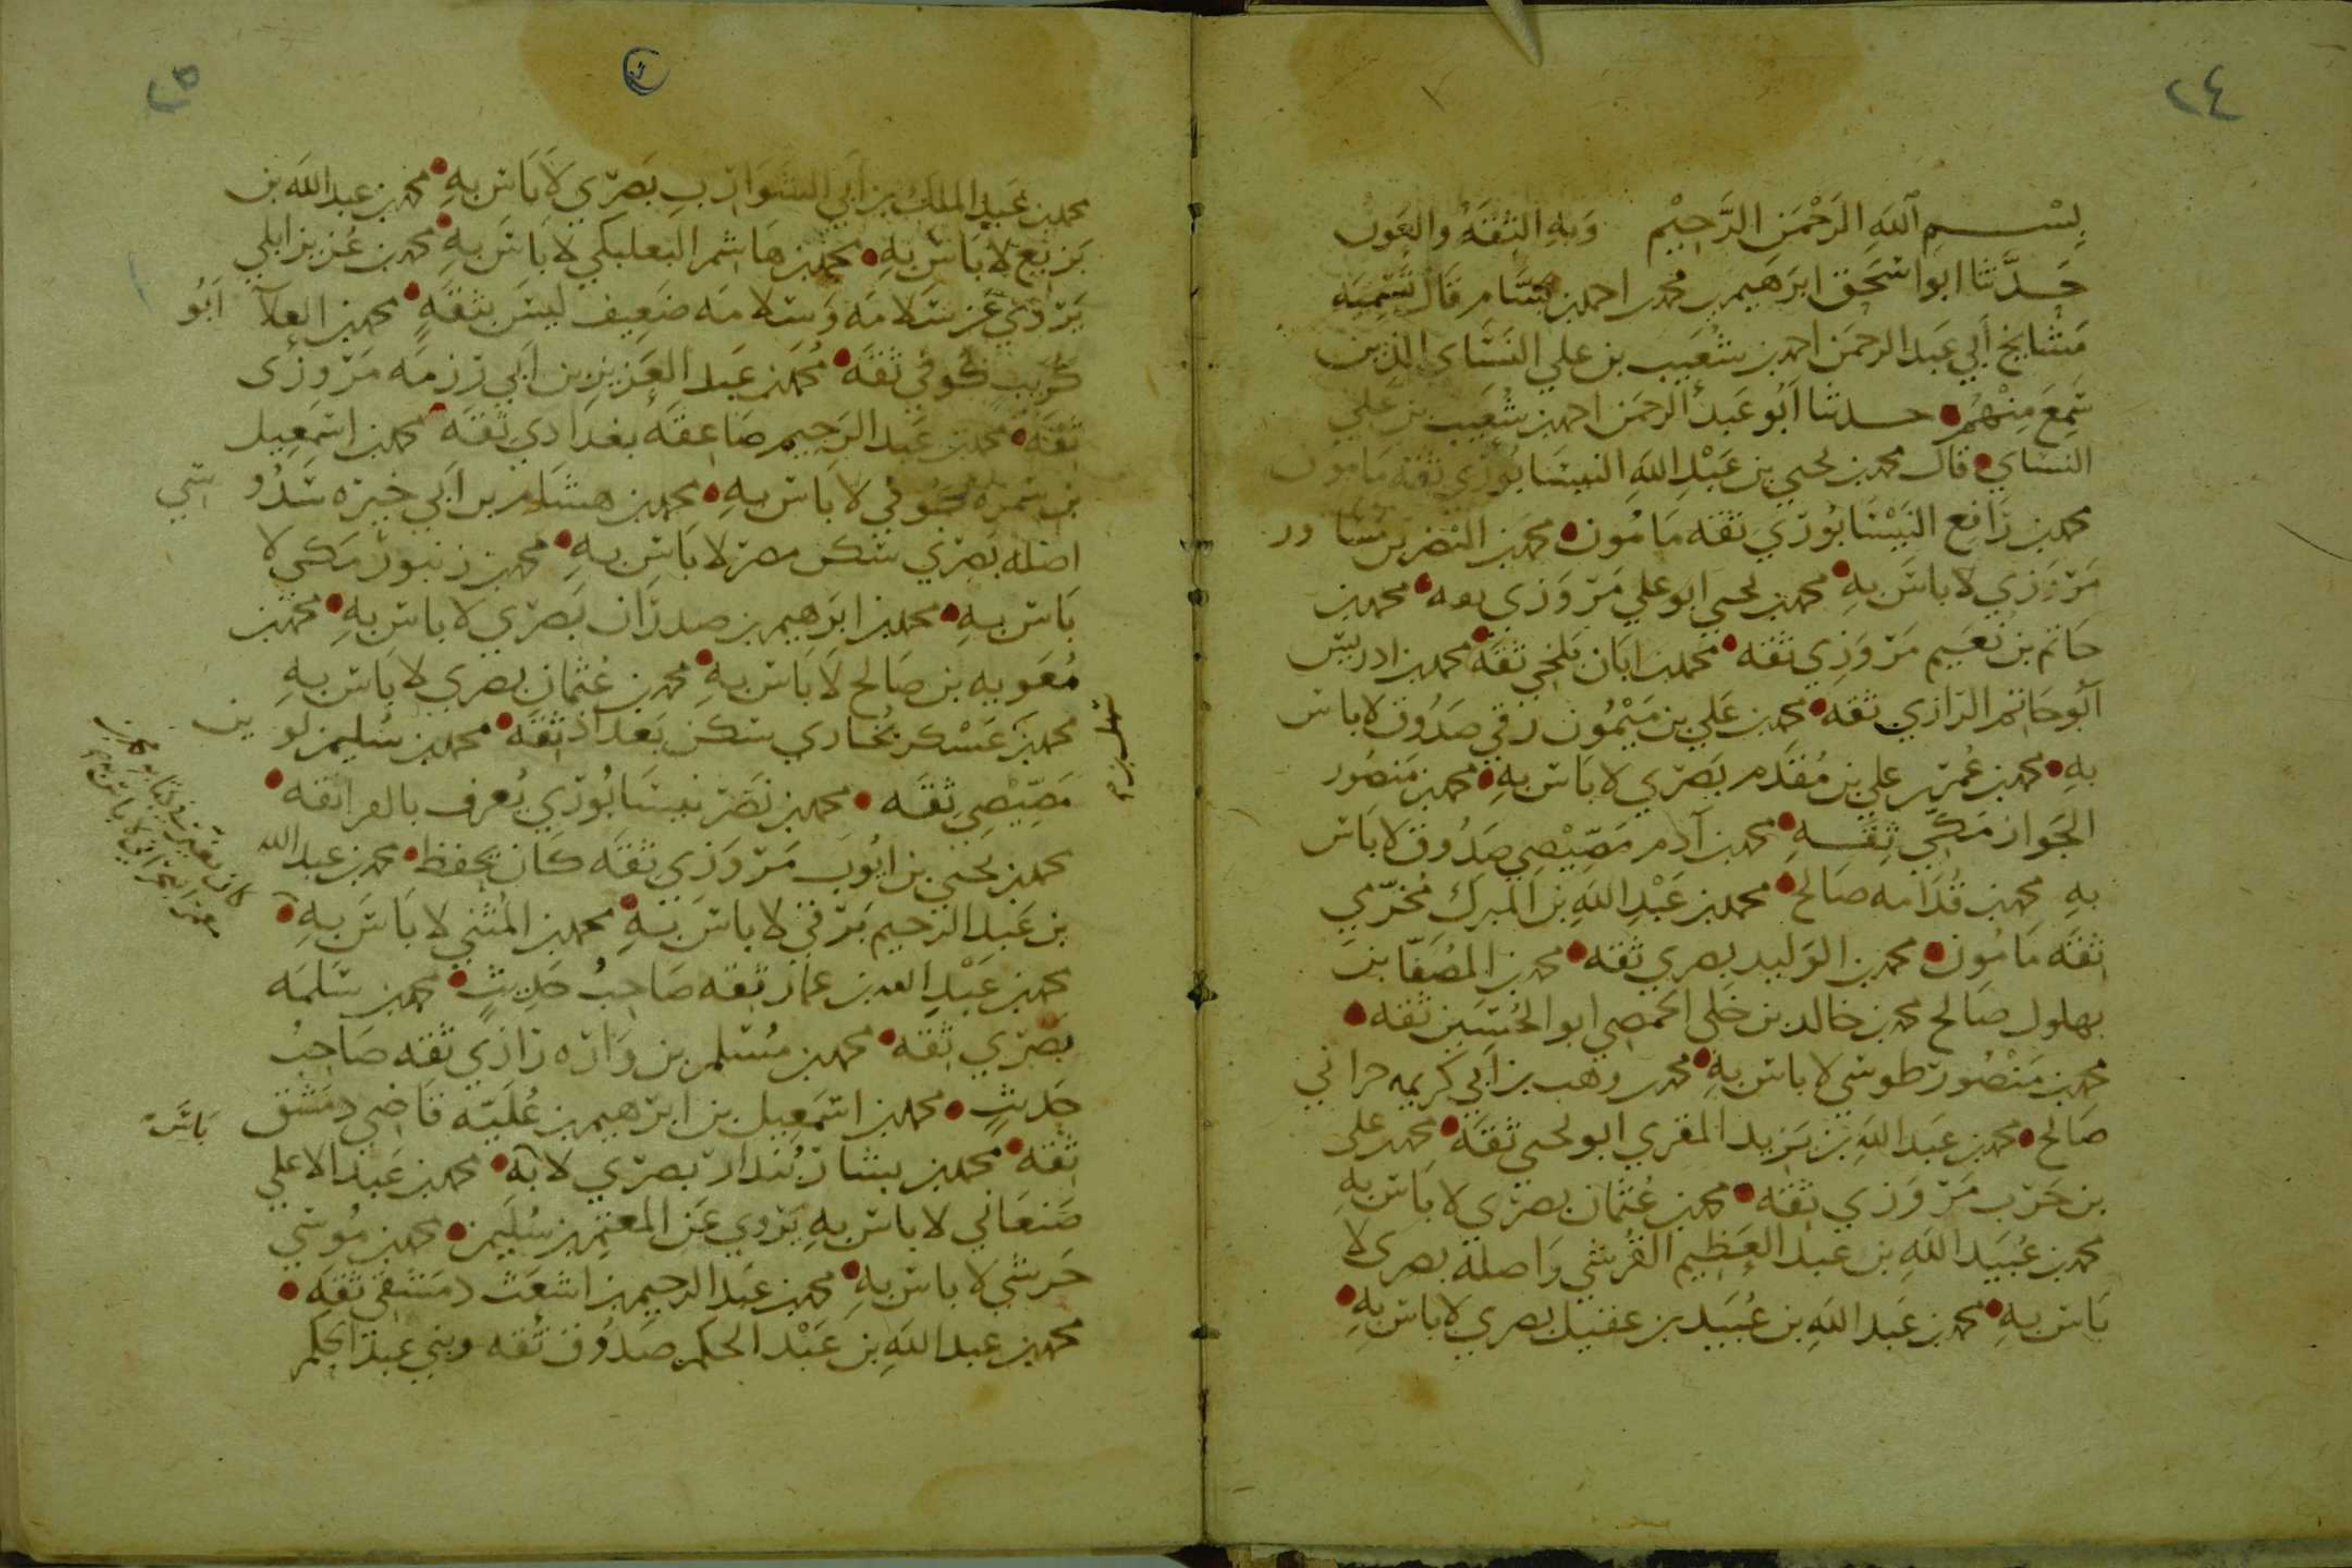 ٢٤
بِسْمِ اللهِ الرَّحْمَنِ الرَّحِيْمِ وَبِهِ الثِّقَةُ والعَونُ
حَدَّثنا ابو اسحق ابرهيم بن محمد بن احمد بن بسَّام قال تسْمِيَه
مشايخ أبي عبد الرحمن احمد بن شعيب بن علي النسَاى الذين
سَمِعَ مِنْهُم حدثنا ابُو عَبد الرحمن احمد بن شُعَيب بن عَلي
النسَاي قال محمد بن يحيى بن عَبْدِ اللهِ النيسَابُوري ثقه مامون
محمد بن رَافع النَيْسَابُوري ثقه مَامُون محمد بن النضر بن مسَاور
مَرْوَزي لا باسَ بِهِ محمد بن يحيى ابو علي مَرْوَزي ثقه محمد بن
حَاتم بن نُعَيم مَرْوَزِي ثقه محمد بن ابَان بَلخي ثقَة محمد بن ادريس
أبُو حَاتم الرَازي ثقه محمد بن عَلي بن مَيْمُون رقي صَدُوق لا باس
به محمد بن عُمَر بن علي بن مُقَدَّم بَصْري لا بَاسَ بهِ محمد بن مَنصُور
الجَوَاز مَكّي ثِقَه محمد بن آدم مَصِّيْصِي صَدُوق لا بَاس
بهِ محمد بن قُدَامه صَالح محمد بن عَبْدِ اللهِ بن المبرك مُخَرّمي
ثقَه مَامُون محمد بن الوَليد بصري ثقه محمد بن المُصَفّا بن
بهلول صَالح محمد بن خالد بن خَلي الحمصي ابو الحُسَين ثقه
محمد بن مَنْصُور طوسي لا باس بِهِ محمد بن وهب بن أبي كريمه حراني
صَالح محمد بن عَبد اللهِ بن يَزيد المقري ابو يحيى ثقَة محمد بن على
بن حَرْب مَرْوَزي ثقه محمد بن عُثمان بصْري لا بَاس به
محمد بن عُبَيد اللهِ بن عبد العَظيم القُرشي وَاصله بصرى لا
بَاس بهِ محمد بن عَبد اللهِ بن عُبَيد بن عقيل بصري لا باس بِهِ
٢٥
محمد بن عَبد الملك بن أبي الشوَارب بَصْري لَا بَاس بهِ محمد بن عبد الله بن
بَزيع لا بَاسَ بهِ محمد بن هَاشم البعلبكي لا بَاسَ بهِ محمد بن عُزيز ايلي
يَرْوي عَن سَلامَه وَسَلامَه ضَعِيف ليسَ بثقَةٍ محمد بن العلآ ابُو
كُرَيب كُوفي ثقَه مُحَمد بن عَبد العَزيز بن ابي رزمَه مَرْوزى
ثقَة محمد بن عَبد الرَحيم صَاعِقَه بغدَادي ثقَه محمد بن اسمَعيل
بن سَمرَه كُوفي لا باس بهِ محمد بن هشَام بن ابي خيرَه سَدُوسي
اصله بَصْري سكن مصر لا بَاس بهِ محمد بن زنبور مَكي لا
بَاس بهِ محمد بن ابرَهيم بن صدرَان بَصْري لا باس بهِ محمد بن
مُعَويه بن صَالح لَا بَاسَ بهِ محمد بن عُثمان بصري لا بَاس بهِ
محمد بن عَسْكر بُخاري سكن بَغدَاد ثقَه محمد بن سُليمن لوين
مَصّيْصِي ثقَه محمد بن نَصْر نيسَابُوري يُعرف بالفرا ثقه
محمد بن يَحيى بن ايُوب مَرْوَزي ثقَه كَان يحفظ محمد بن عبد الله
بن عَبد الرحيم بَرْقي لا باسَ بهِ محمد بن المُثني لا بَاسَ بِهِ
محمد بن عَبْدِ الله بن عمَار ثقه صَاحِبُ حَدِيثٍ محمد بن سَلمَه
بَصْري ثقَه محمد بن مُسْلم بن وَارَه رَازي ثقَه صَاحِبُ
حَديثٍ محمد بن اسمَعِيل بن ابرَهيم بن عُلَيَّه قَاضِي دمَشق
ثقَه محمد بن بشار بُندَار بصْري لا به محمد بن عَبد الاعلي
بَاسَ
صَنعَاني لا باس بهِ يَرْوي عَن المعتمر بن سُلَيمَن محمد بن مُوسَي
حَرشي لا باس بهِ محمد بن عَبد الرحيم بن اشعَث دمَشقي ثقَه
محمد بن عبد اللهِ بن عَبْد الحكَم صَدُوق ثُقه وبني عبد الحكم